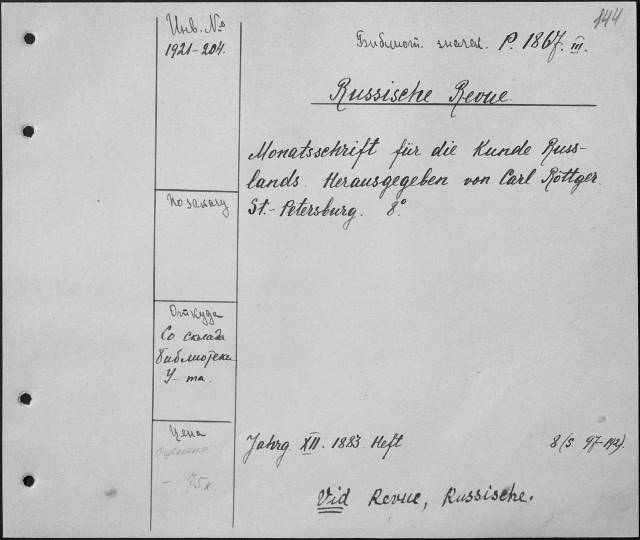 144
Инв. №
1921-204.
Библиот. значек. P. 1867. III.
Russische Revue.
Monatsschrift für die Kunde Russ-
lands. Herausgegeben von Carl Röttger.
St.-Petersburg. 8°
По заказу
Откуда
Со склада
библиотеки
У-та.
Цена
75 к.
Jahrg. XII. 1883. Heft 8 (S. 97-192).
Vid Revue, Russische.